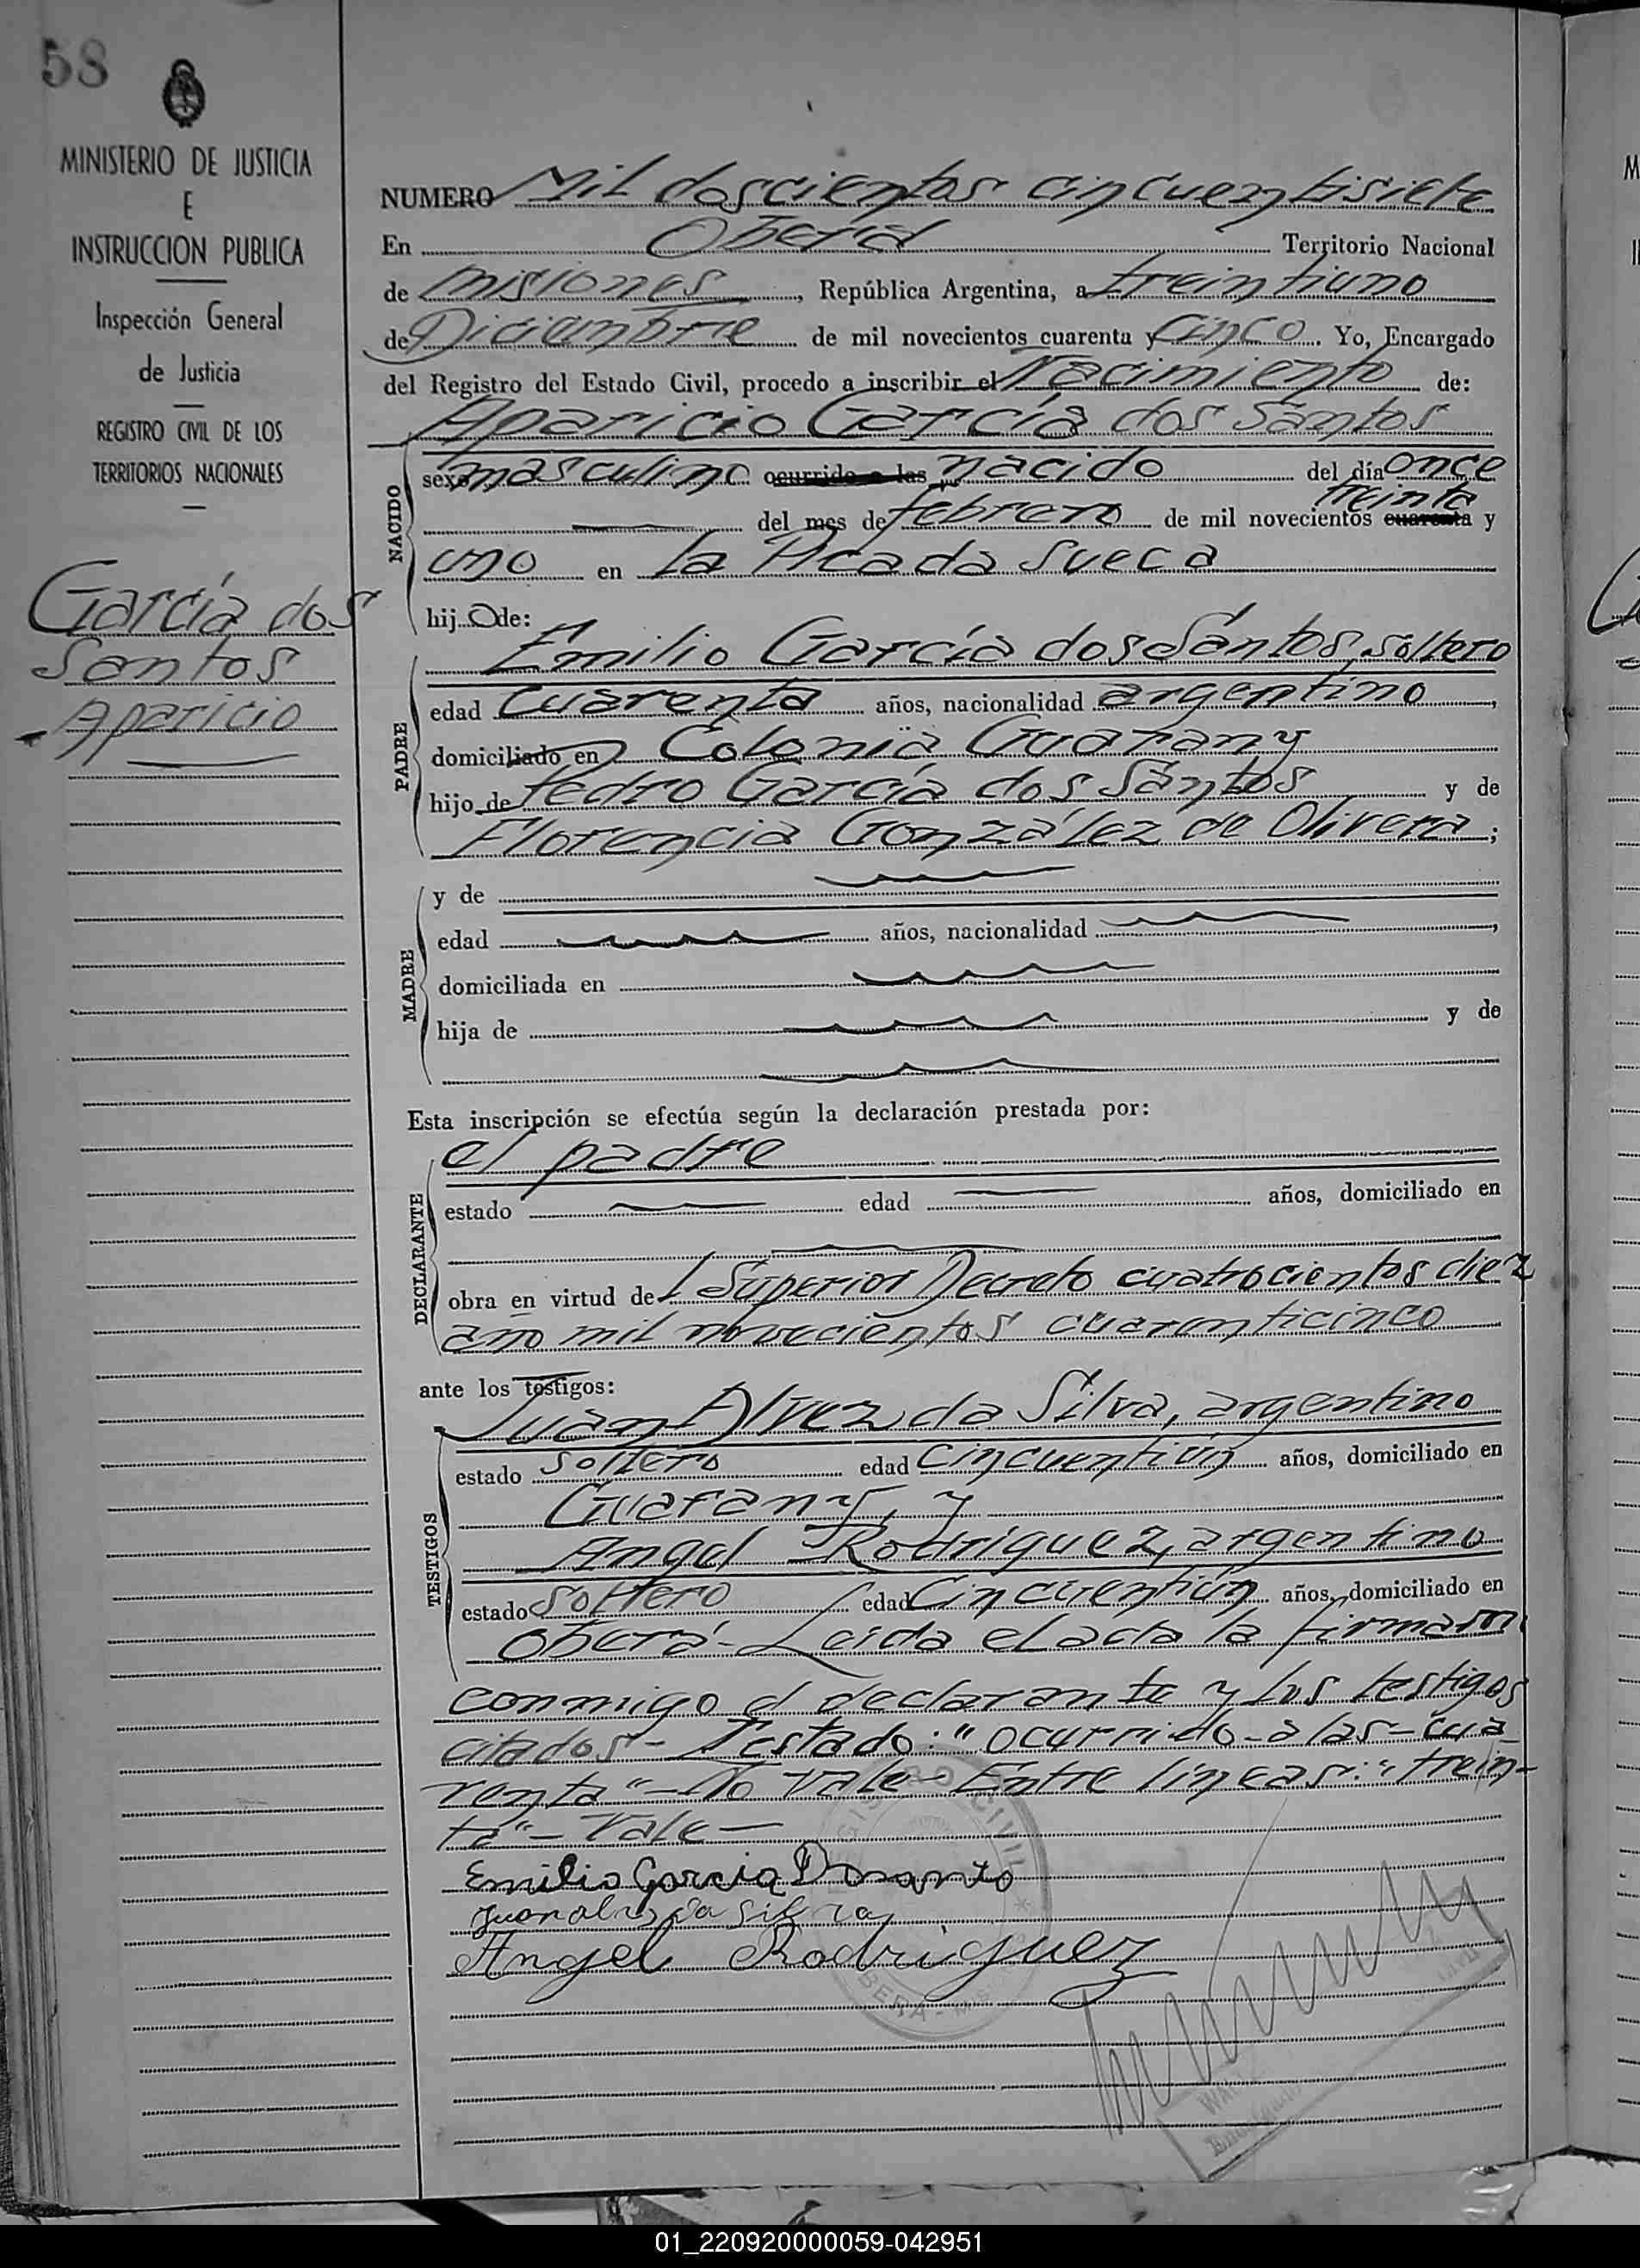 58
MINISTERIO DE JUSTICIA
E
INSTRUCCION PUBLICA
Inspección General
de Justicia
REGISTRO CIVIL DE LOS
TERRITORIOS NACIONALES
García dos
Santos
Aparicio
NUMERO Mil doscientos cincuentisiete
En Oberá Territorio Nacional
de Misiones, República Argentina, a treintiuno
de Diciembre de mil novecientos cuarenta y Cinco. Yo, Encargado
del Registro del Estado Civil, procedo a inscribir el Nacimiento de:
Aparicio García dos Santos
NACIDO
sexo masculino ocurrido a las nacido del día once
treinta
del mes de febrero de mil novecientos cuarenta y
uno en la Picada Sueca
hijo de:
PADRE
Emilio García dos Santos, soltero
edad cuarenta años, nacionalidad argentino,
domiciliado en Colonia Guarany
hijo de Pedro García dos Santos y de
Florencia González de Olivera;
MADRE
y de
edad años, nacionalidad ,
domiciliada en
hija de y de
Esta inscripción se efectúa según la declaración prestada por:
DECLARANTE
el padre
estado edad años, domiciliado en
obra en virtud del Superior Decreto cuatrocientos diez
año mil novecientos cuarenticinco
ante los testigos:
TESTIGOS
Juan Alvez da Silva, argentino
estado soltero edad cincuentiún años, domiciliado en
Guarany, y
Angel Rodríguez, argentino
estado soltero edad cincuentiún años, domiciliado en
Oberá- Leida el acta la firmaron
conmigo el declarante y los testigos
citados- Testado: "ocurrido-a las-cua-
renta"-No vale- Entre líneas: "trein-
ta"-Vale-
Emilio Garcia Dosanto
Juan alves da Silva
Angel Rodriguez
REGISTRO CIVIL
OBERA - Mis
01_220920000059-042951